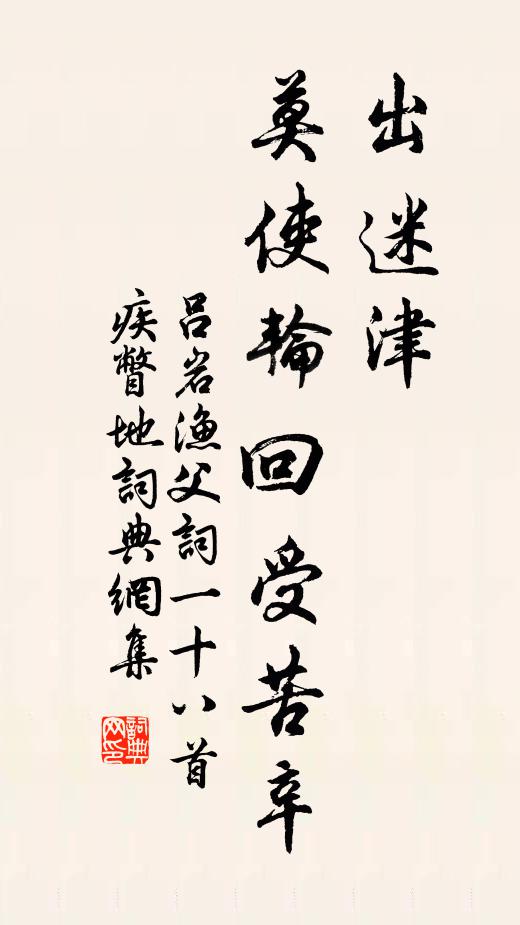 出迷津
莫使輪回受苦辛
呂岩漁父詞一十八首
疾瞥地詞典網集
詞典网印